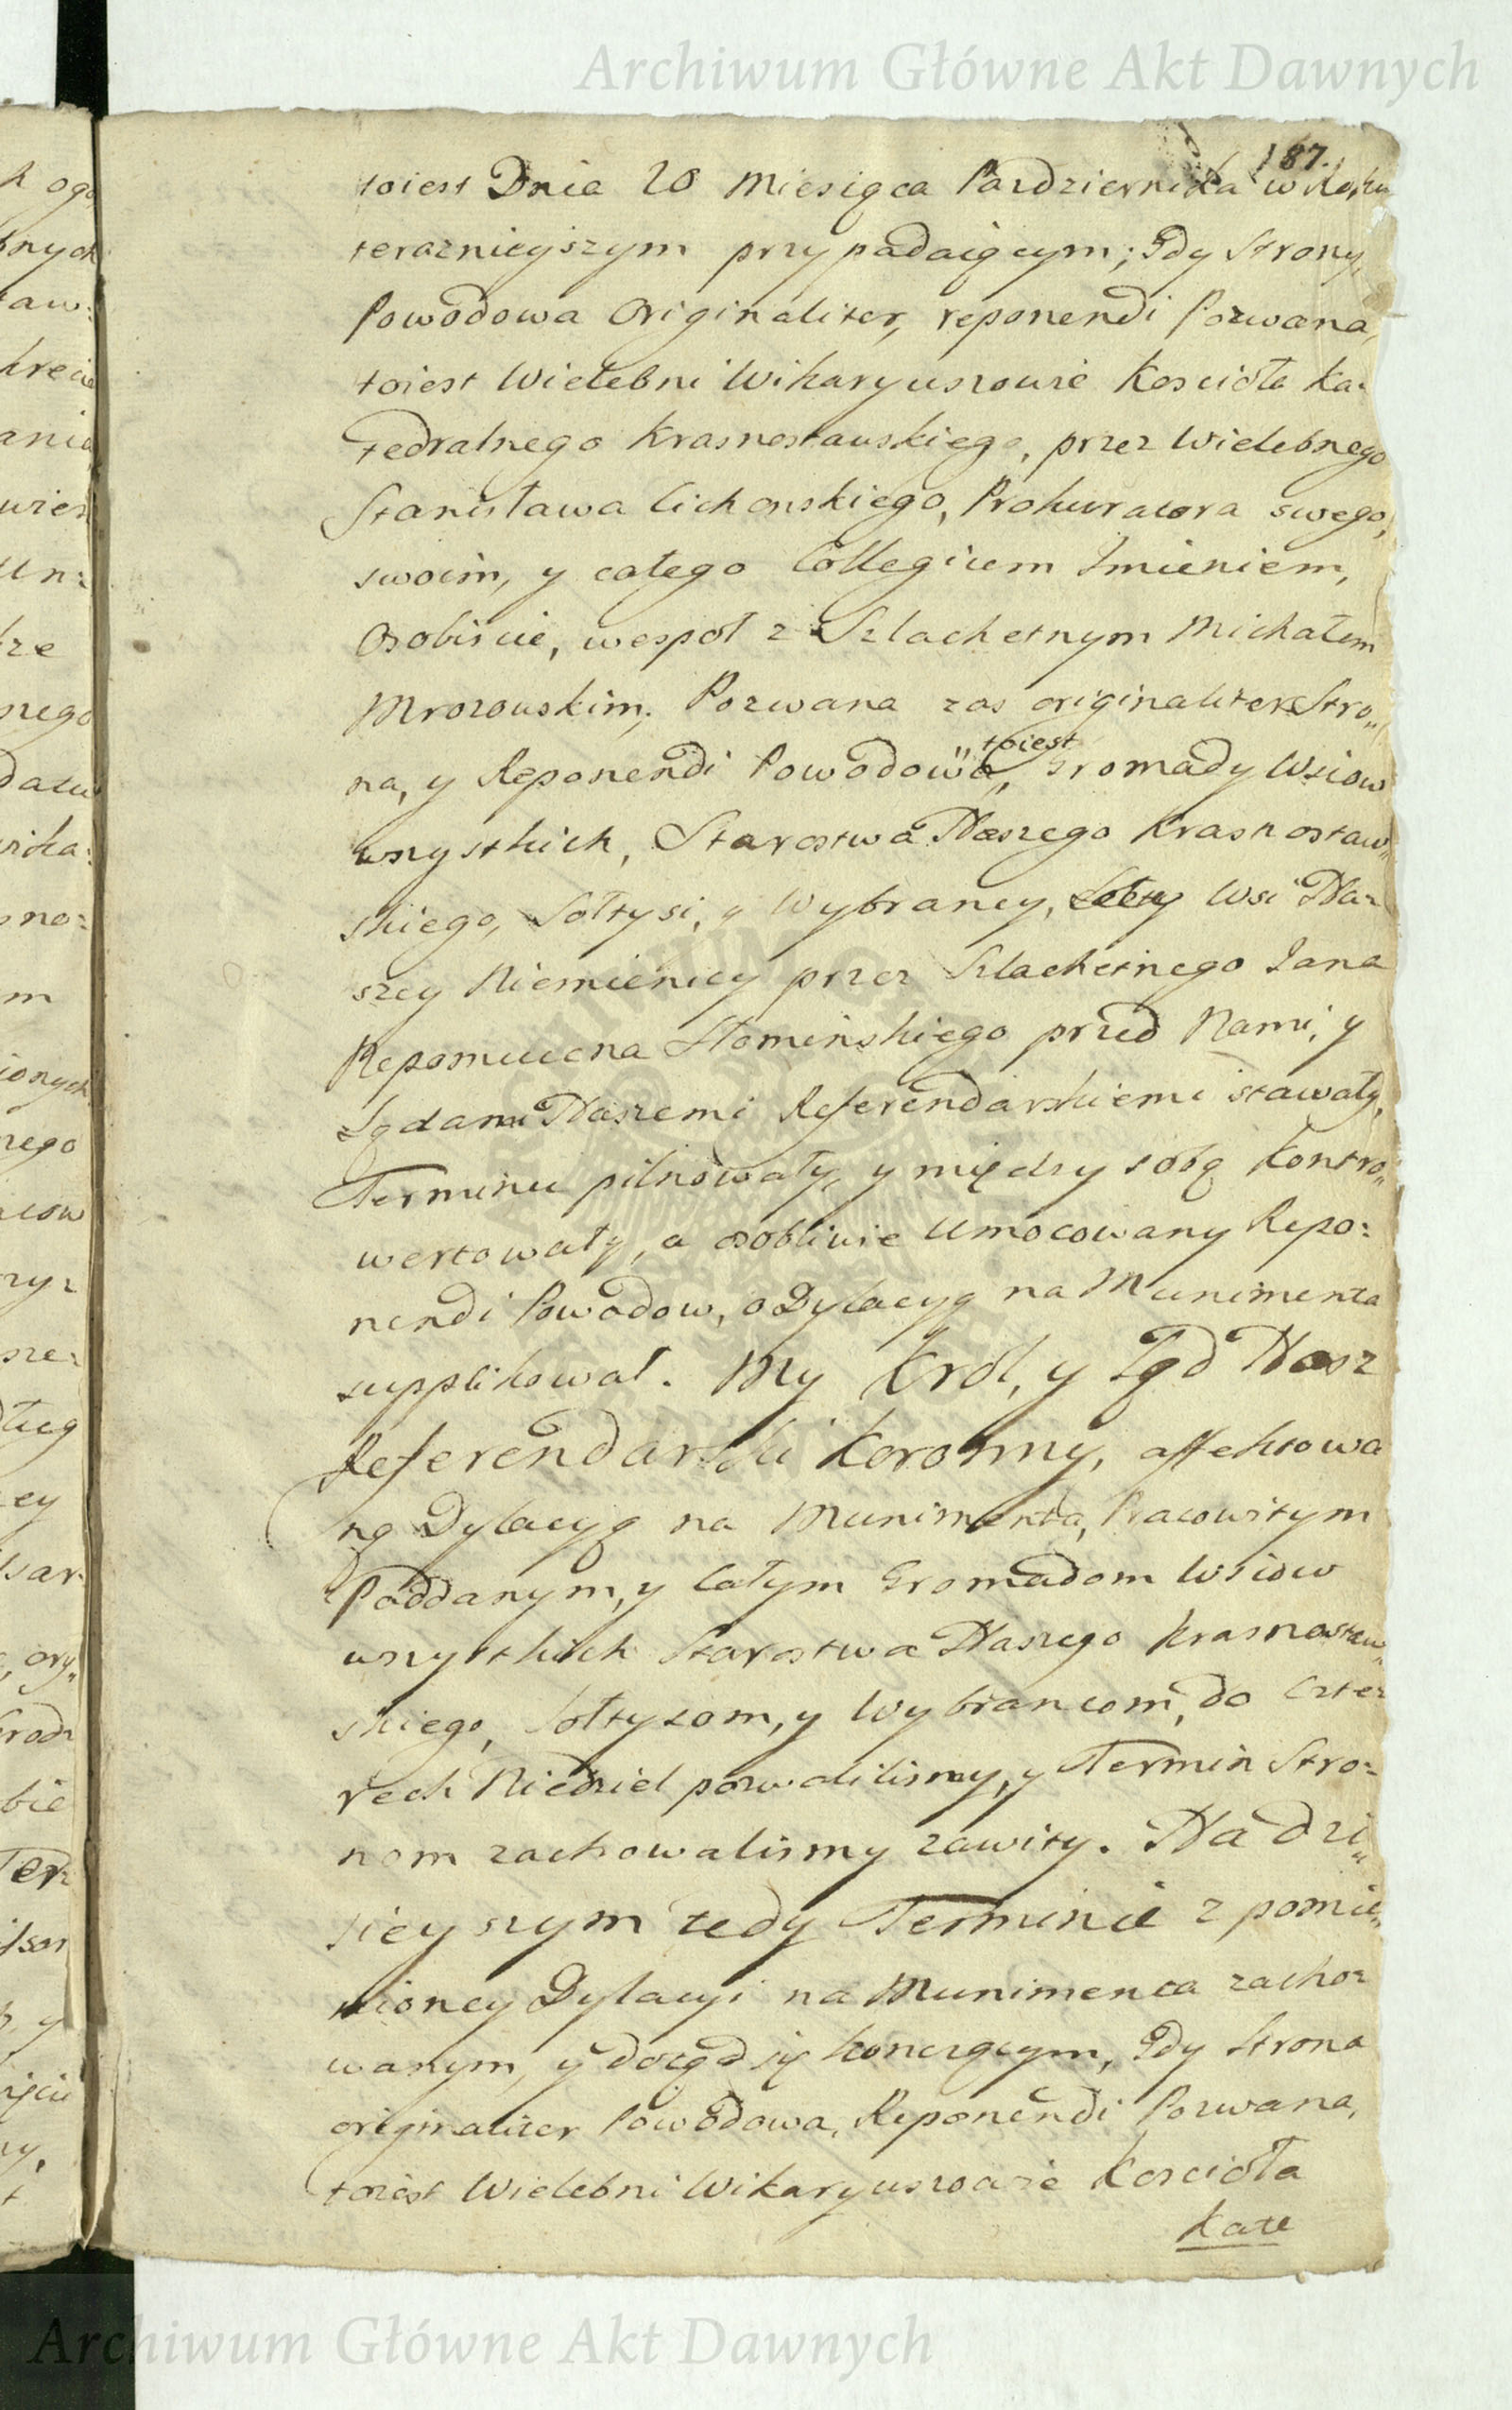 Archiwum Główne Akt Dawnych
187.
toiest Dnia 20 Miesiąca Pazdziernika w Roku
teraznieyszym przypadaiącym; Gdy Strony
Powodowa Originaliter, reponendi Pozwana,
toiest Wielebni Wikaryuszowie Koscioła Ka=
tedralnego Krasnostawskiego, przez Wielebnego
Stanisława Cichonskiego, Prokuratora swego,
swoim, y całego Collegium Imieniem,
Osobiscie, wespoł z Szlachetnym Michałem
Mrozowskim, Pozwana zas originaliter Stro„
na, y Reponendi Powodowa„ toiest Gromady Wsiow
wszystkich, Starostwa Naszego Krasnostaw„
skiego, Sołtysi, y Wybrancy, Wsi Na=
szey Niemienicy przez Szlachetnego Jana
Nepomucena Słominskiego przed Nami, y
Sądami Naszemi Referendarskiemi stawały,
Terminu pilnowały, y między sobą Kontro„
wertowały, a osobliwie Umocowany Repo=
nendi Powodow, o Dylacyą na Munimenta
supplikował. My Krol, y Sąd Nasz
Referendarski Koronny, affektowa
ną Dylacyą na Munimenta, Pracowitym
Poddanym, y Całym Gromadom Wsiow
wszystkich Starostwa Naszego Krasnostaw„
skiego, Sołtysom, y Wybrancom, do Czte=
rech Niedziel pozwolilismy, y Termin Stro=
nom zachowalismy zawity. Na dzi„
sieyszym tedy Terminie z pomie„
nioney Dylacyi na Munimenta zacho=
wanym, y dotąd się konczącym, Gdy Strona
originaliter Powodowa, Reponendi Pozwana,
toiest Wielebni Wikaryuszowie Koscioła
Kate
Archiwum Główne Akt Dawnych